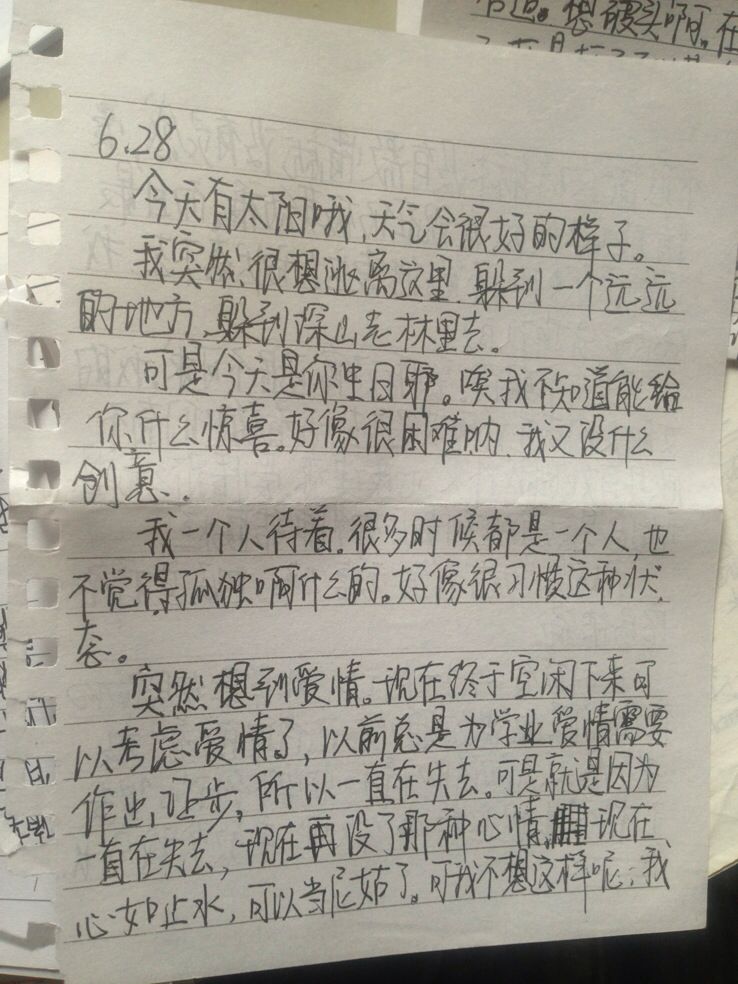 后面。想馒头啊。在
6.28
今天有太阳哦，天气会很好的样子。
我突然很想逃离这里，躲到一个远远
的地方，躲到深山老林里去。
可是今天是你生日耶。唉我不知道能给
你什么惊喜。好像很困难呐，我又没什么
创意。
我一个人待着。很多时候都是一个人，也
不觉得孤独啊什么的。好像很习惯这种状
态。
突然想到爱情。现在终于空闲下来可
以考虑爱情了，以前总是为学业爱情需要
作出让步，所以一直在失去。可是就是因为
一直在失去，现在再没了那种心情，现在
心如止水，可以当尼姑了。可我不想这样呢；我